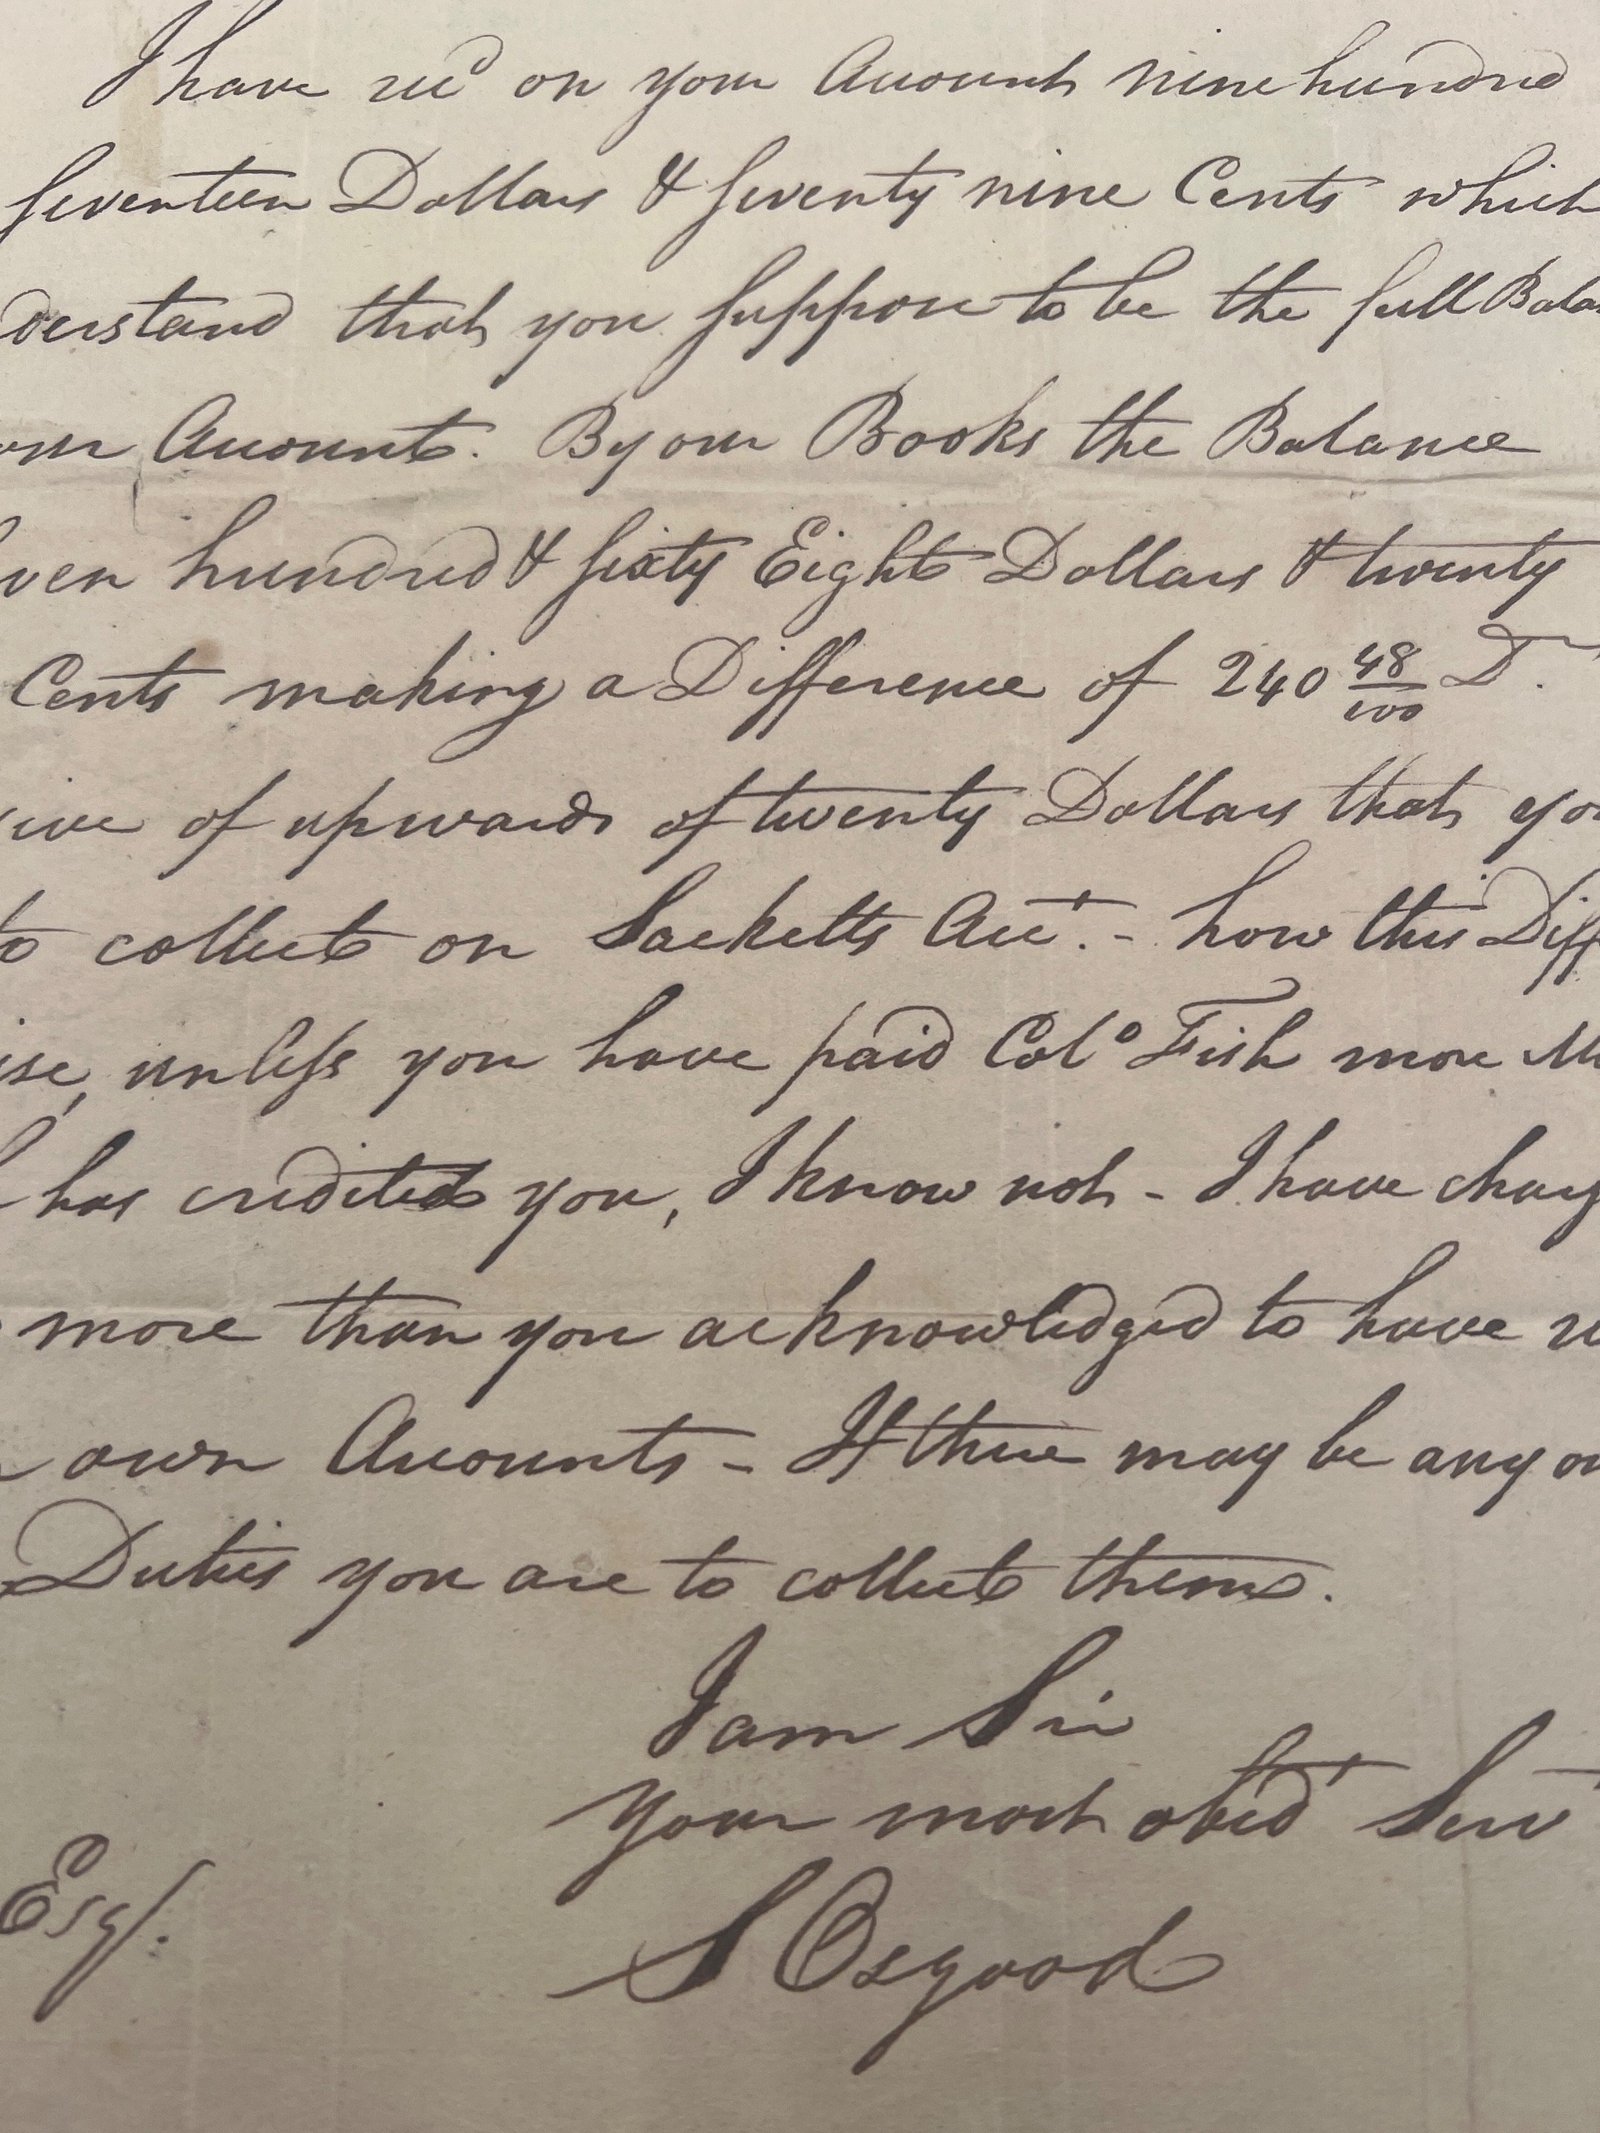 I have recd on your Account nine hundred
seventeen Dollars & seventy nine Cents which
derstand that you suppose to be the full Bala
Accounts. By our Books the Balance
ven hundred & sixty Eight Dollars & twenty
Cents making a Difference of 240 48/100 Drs.
ive of upwards of twenty Dollars that you
to collect on Sacketts Acct. - how this Diff
ise, unless you have paid Colo Fish more M
has credited you, I know not - I have charg
more than you acknowledged to have re
own Accounts - If there may be any
Duties you are to collect them.
I am Sir
your most obedt Servt
S Osgood
Esqr.